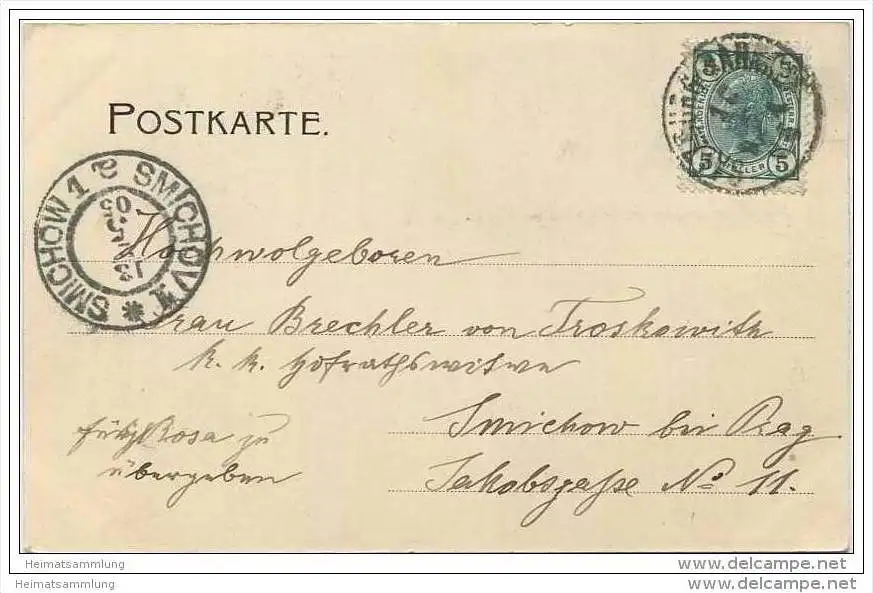 POSTKARTE.
SMICHOW 1 SMÍCHOV 1
13 5 05
5 HELLER 5
Hochwolgeboren
Frau Brechler von Troskowith
k. k. Hofrathswitwe
Smichow bei Prag
Jakobsgaße No 11.
für Rosa zu
übergeben
Heimatsammlung
www.delcampe.net
Heimatsammlung
www.delcampe.net